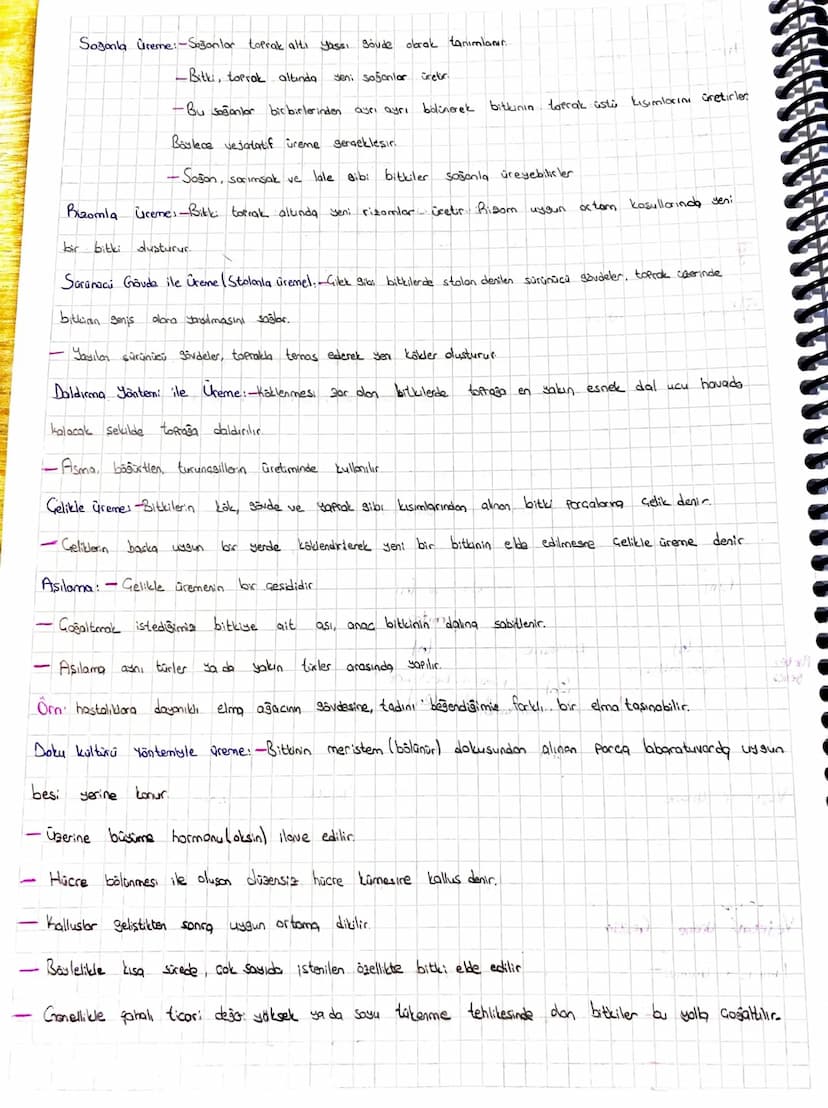 Soğanla Üreme:-Soğanlar toprak altı yassı gövde olarak tanımlanır.
-Bitki, toprak altında yeni soğanlar üretir.
-Bu soğanlar birbirlerinden ayrı ayrı bölünerek bitkinin toprak üstü kısımlarını üretirler.
Böylece vejatatif üreme gerçekleşir.
-Soğan, sarımsak ve lale gibi bitkiler soğanla üreyebilirler
Rizomla Üreme:-Bitki toprak altında yeni rizomlar üretir. Rizom uygun ortam koşullarında yeni
bir bitki oluşturur.
Sürünücü Gövde ile Üreme (Stolonla üreme):-Çilek gibi bitkilerde stolon denilen sürünücü gövdeler, toprak üzerinde
bitkinin geniş alana yayılmasını sağlar.
- Yayılan sürünücü gövdeler, toprakla temas ederek yeni kökler oluşturur
Daldırma Yöntemi ile Üreme:-Köklenmesi zor olan bitkilerde toprağa en yakın esnek dal ucu havada
kalacak şekilde toprağa daldırılır.
-Asma, böğürtlen, turunçgillerin üretiminde kullanılır
Çelikle üreme:-Bitkilerin kök, gövde ve yaprak gibi kısımlarından alınan bitki parçalarına çelik denir.
-Çeliklerin başka uygun bir yerde köklendirilerek yeni bir bitkinin elde edilmesine çelikle üreme denir
Aşılama: - Çelikle üremenin bir çeşididir
- Çoğaltmak istediğimiz bitkiye ait aşı, anaç bitkinin dalına sabitlenir.
- Aşılama aynı türler ya da yakın türler arasında yapılır.
Örn: hastalıklara dayanıklı elma ağacının gövdesine, tadını beğendiğimiz farklı bir elma taşınabilir.
Doku kültürü yöntemiyle üreme:-Bitkinin meristem (bölünür) dokusundan alınan parça laboratuvarda uygun
besi yerine konur.
- Üzerine büyüme hormonu(oksin) ilave edilir.
- Hücre bölünmesi ile oluşan düzensiz hücre kümesine kallus denir.
- Kalluslar geliştikten sonra uygun ortama dikilir.
- Böylelikle kısa sürede, çok sayıda istenilen özellikte bitki elde edilir
- Genellikle pahalı ticari değeri yüksek ya da soyu tükenme tehlikesinde olan bitkiler bu yolla çoğaltılır.